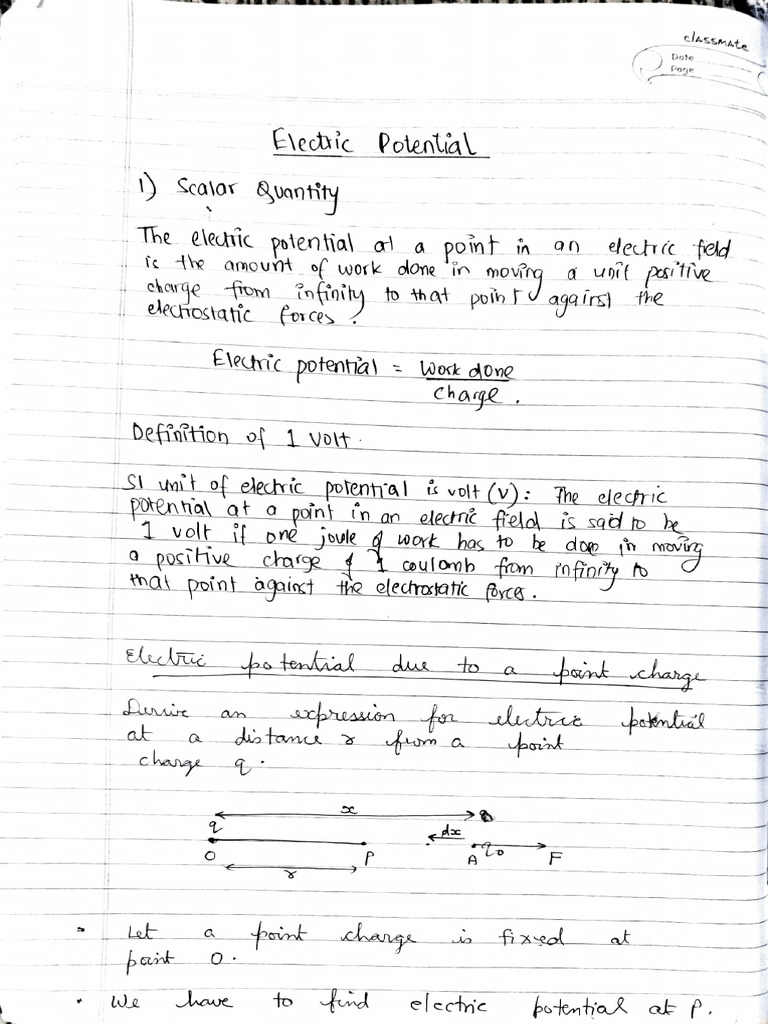 classmate
Date
Page
Electric Potential
1) Scalar Quantity
The electric potential at a point in an electric field
is the amount of work done in moving a unit positive
charge from infinity to that point against the
electrostatic forces.
Electric potential = Work done
charge.
Definition of 1 Volt.
SI unit of electric potential is volt (V): The electric
potential at a point in an electric field is said to be
1 volt if one joule of work has to be done in moving
a positive charge of 1 coulomb from infinity to
that point against the electrostatic forces.
Electric potential due to a point charge
Derive an expression for electric potential
at a distance r from a point
charge q.
x
q dx
O P A q₀ F
r
Let a point charge is fixed at
point O.
• We have to find electric potential at P.